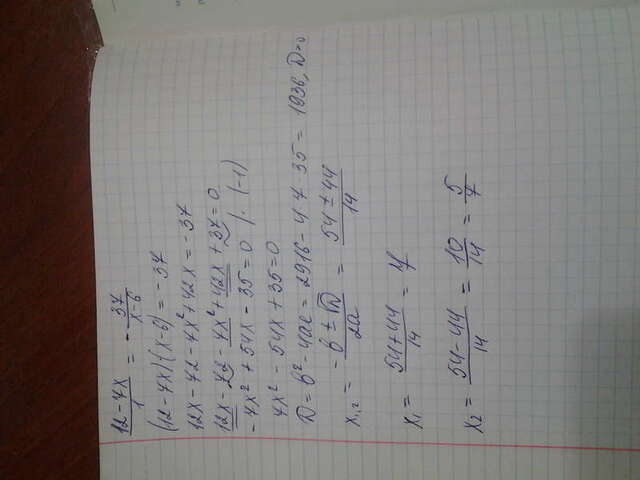 12-7x/1 = -37/x-6
(12-7x)(x-6) = -37
12x-72-7x²+42x = -37
12x-72-7x²+42x+37=0
-7x²+54x-35=0 /·(-1)
7x²-54x+35=0
D=b²-4ac=2916-4·7·35=1936, D>0
x₁,₂ = -b±√D/2a = 54±44/14
x₁= 54+44/14 = 7
x₂= 54-44/14 = 10/14 = 5/7